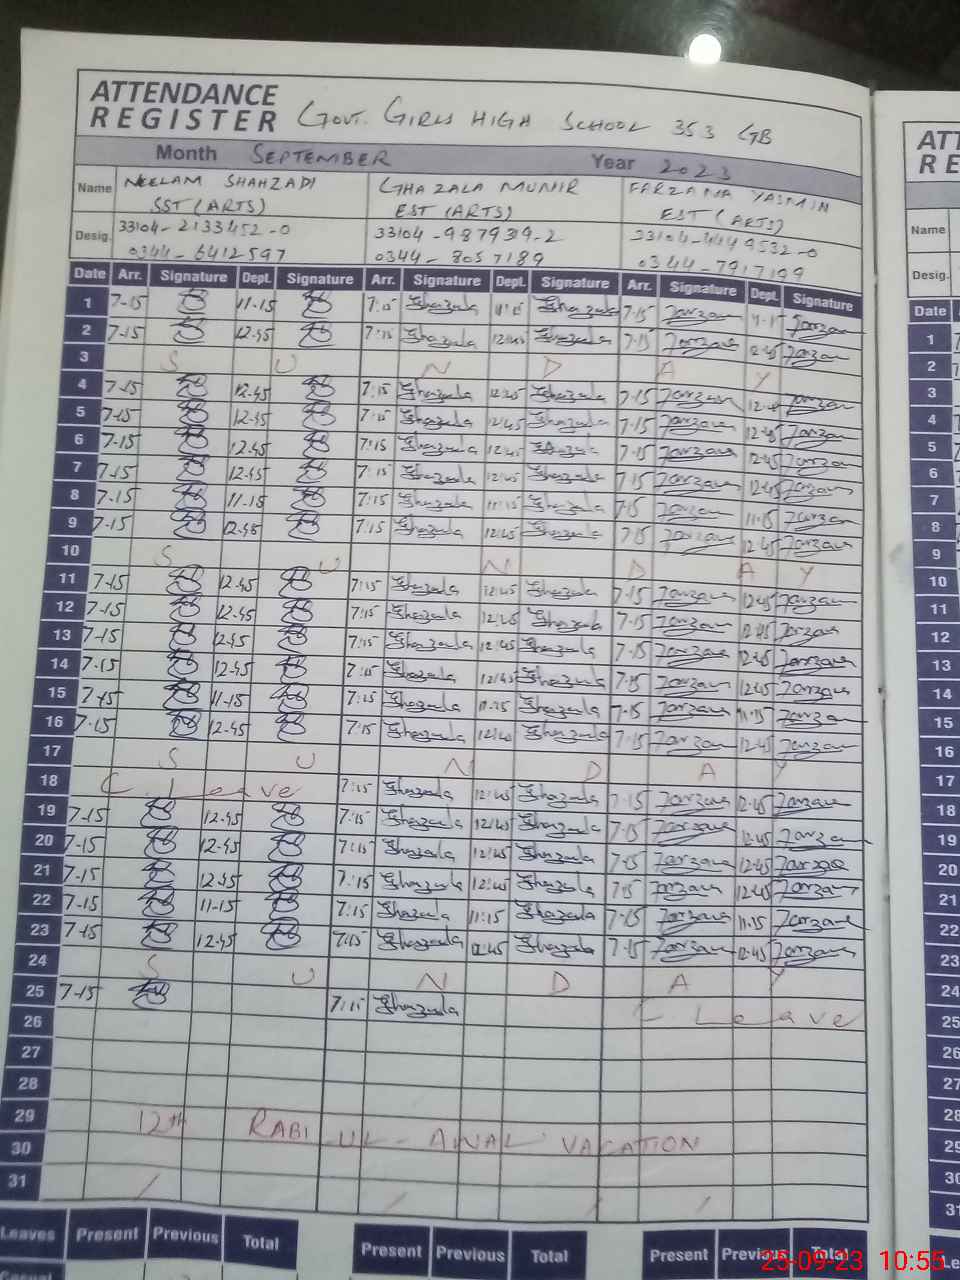 ATTENDANCE
REGISTER GOVT. GIRLS HIGH SCHOOL 353 GB
Month SEPTEMBER Year 2023
Name NEELAM SHAHZADI GHAZALA MUNIR FARZANA YASMIN
SST (ARTS) EST (ARTS) EST (ARTS)
Desig. 33104-2133452-0 33104-987939-2 33104-4449532-0
0344-6412597 0344-8057189 0344-7917199
Date Arr. Signature Dept. Signature Arr. Signature Dept. Signature Arr. Signature Dept. Signature
1 7-15 11-15 7:15 Ghazala 11:15 Ghazala 7-15 Farzana 11-15 Farzana
2 7-15 12.45 7:15 Ghazala 12:45 Ghazala 7-15 Farzana 12.45 Farzana
3 S U N D A Y
4 7-15 12.45 7:15 Ghazala 12:45 Ghazala 7-15 Farzana 12.45 Farzana
5 7-15 12.45 7:15 Ghazala 12:45 Ghazala 7-15 Farzana 12.45 Farzana
6 7-15 12.45 7:15 Ghazala 12:45 Ghazala 7-15 Farzana 12.45 Farzana
7 7-15 12.45 7:15 Ghazala 12:45 Ghazala 7-15 Farzana 12.45 Farzana
8 7-15 11-15 7:15 Ghazala 11:15 Ghazala 7-15 Farzana 11-15 Farzana
9 7-15 12.45 7:15 Ghazala 12:45 Ghazala 7-15 Farzana 12.45 Farzana
10 S U N D A Y
11 7-15 12.45 7:15 Ghazala 12:45 Ghazala 7-15 Farzana 12.45 Farzana
12 7-15 12.45 7:15 Ghazala 12:45 Ghazala 7-15 Farzana 12.45 Farzana
13 7-15 12.45 7:15 Ghazala 12:45 Ghazala 7-15 Farzana 12.45 Farzana
14 7-15 12.45 7:15 Ghazala 12:45 Ghazala 7-15 Farzana 12.45 Farzana
15 7-15 11-15 7:15 Ghazala 11-15 Ghazala 7-15 Farzana 11-15 Farzana
16 7-15 12.45 7:15 Ghazala 12:45 Ghazala 7-15 Farzana 12.45 Farzana
17 S U N D A Y
18 C. Leave 7:15 Ghazala 12:45 Ghazala 7-15 Farzana 12.45 Farzana
19 7-15 12.45 7:15 Ghazala 12:45 Ghazala 7-15 Farzana 12.45 Farzana
20 7-15 12.45 7:15 Ghazala 12:45 Ghazala 7-15 Farzana 12.45 Farzana
21 7-15 12.45 7:15 Ghazala 12:45 Ghazala 7-15 Farzana 12.45 Farzana
22 7-15 11-15 7:15 Ghazala 11:15 Ghazala 7-15 Farzana 11-15 Farzana
23 7-15 12.45 7:15 Ghazala 12:45 Ghazala 7-15 Farzana 12.45 Farzana
24 S U N D A Y
25 7-15 7:15 Ghazala C. Leave
26
27
28
29 12th RABI-UL-AWAL VACATION
30
31
Leaves Present Previous Total Present Previous Total Present Previous Total
Casual
25-09-23 10:55
ATT
RE
Name
Desig.
Date
1
2
3
4
5
6
7
8
9
10
11
12
13
14
15
16
17
18
19
20
21
22
23
24
25
26
27
28
29
30
31
Le